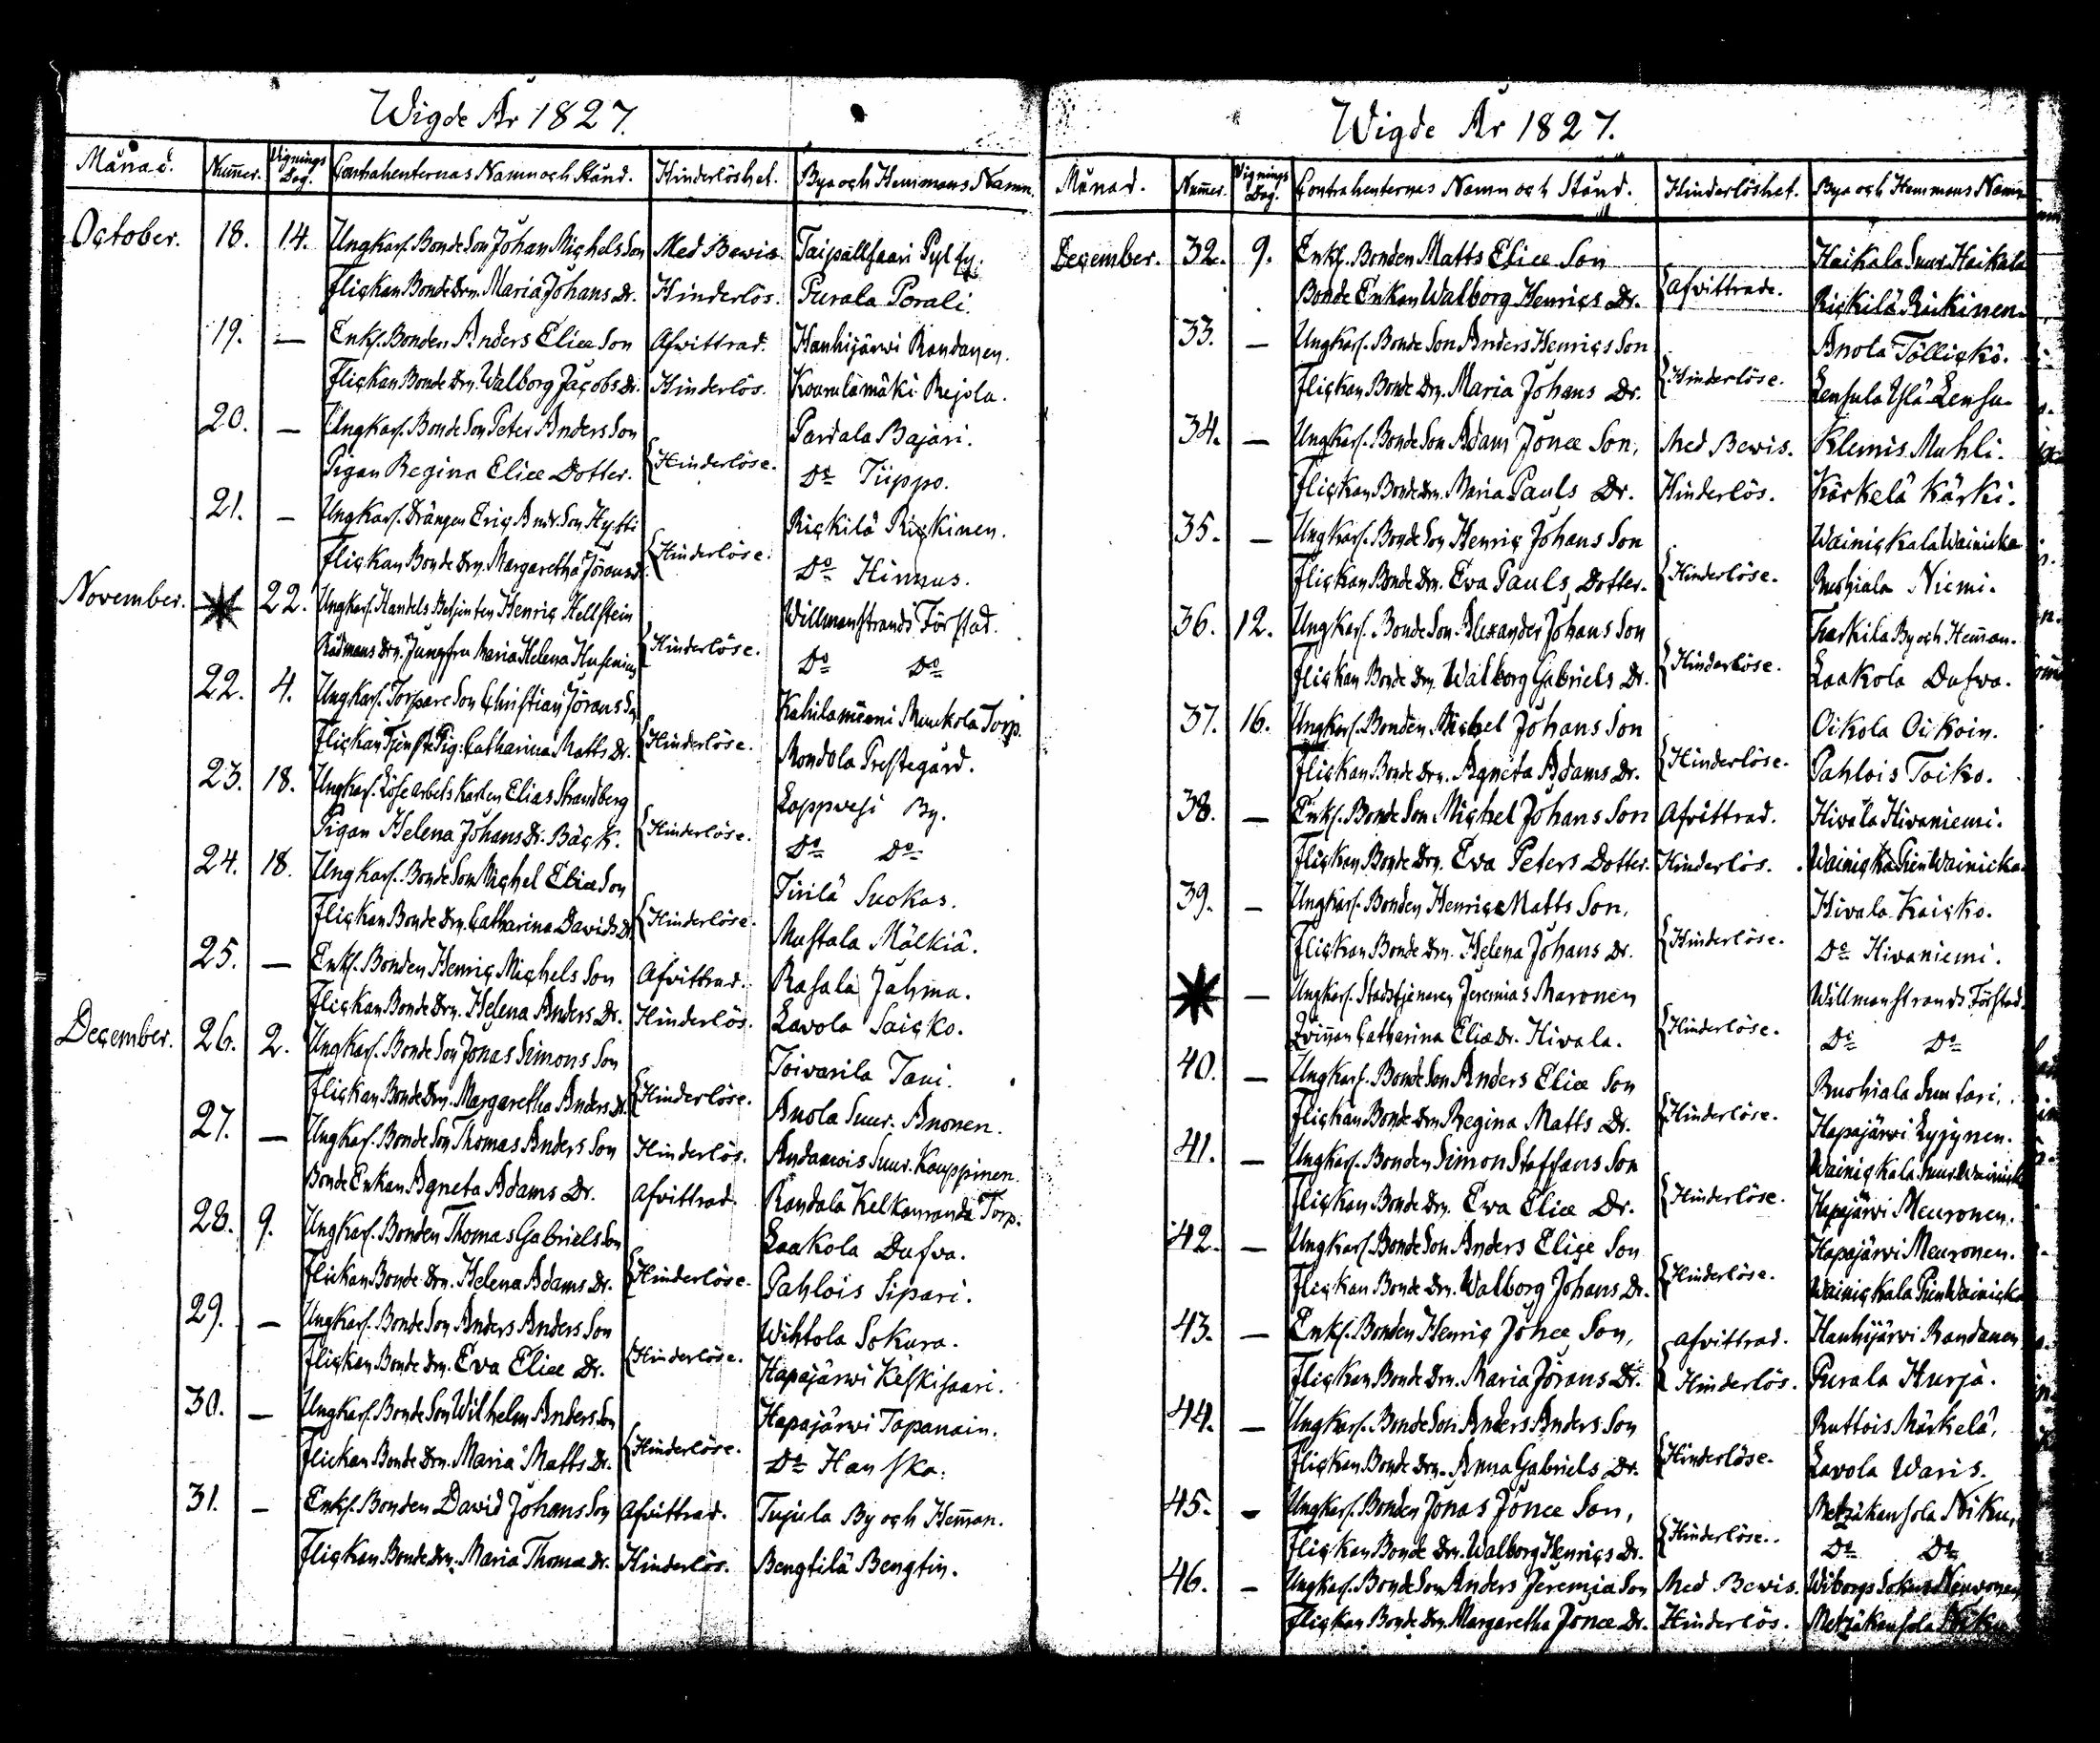 Wigde År 1827.
Månad. Num̃er. Vignings Dag. Contrahenternas Namn och Stånd. Hinderlöshet. Bya och Hemmans Namn.
October. 18. 14. Ungkarl. Bonde Son Johan Michels Son Med Bewis Taipallsaari Pylsy.
Flickan Bonde Drn. Maria Johans Dr. Hinderlös. Purala Porali.
19. — Enkl. Bonden Anders Eliæ Son Afvittrad. Hanhijärwi Randanen.
Flickan Bonde Drn. Walborg Jacobs Dr. Hinderlös. Kourulamäki Rejola.
20. — Ungkarl. Bonde Son Peter Anders Son Pardala Bajari.
Pigan Regina Eliæ Dotter. Hinderlöse. Do Tiippo.
21. — Ungkarl. Drängen Eric And. Son Hytti Rickilä Rickinen.
Flickan Bonde Drn. Margaretha Jörans Dr. Hinderlöse. Do Himus.
November. 22. Ungkarl. Handels Betjenten Henric Hellstein Willmanstrands Förstad.
Rådmans Drn. Jungfru Maria Helena Husenius Hinderlöse. Do Do
22. 4. Ungkarl. Torpare Son Christian Jörans Son Kahilaniemi Muukola Torp.
Flickan Tjenste Pig: Catharina Matts Dr. Hinderlöse. Mondola Prestegård.
23. 18. Ungkarl. Löse arbets Karlen Elias Strandberg Lappvesi By.
Pigan Helena Johans Dr. Bäck. Hinderlöse. Do Do
24. 18. Ungkarl. Bonde Son Michel Eliæ Son Tirilä Suokas.
Flickan Bonde Drn. Catharina Davids Dr. Hinderlöse. Mustala Mälkiä.
25. — Enkl. Bonden Henric Michels Son Afvittrad. Rasala Jahma.
Flickan Bonde Drn. Helena Anders Dr. Hinderlös. Lavola Saicko.
December. 26. 2. Ungkarl. Bonde Son Jonas Simons Son Toivarila Tani.
Flickan Bonde Drn. Margaretha Anders Dr. Hinderlöse. Anola Suur. Anonen.
27. — Ungkarl. Bonde Son Thomas Anders Son Hinderlös. Andarois Suur. Kauppinen.
Bonde Enkan Agneta Adams Dr. Afvittrad. Randala Kelkanranda Torp.
28. 9. Ungkarl. Bonden Thomas Gabriels Son Laakola Dufva.
Flickan Bonde Drn. Helena Adams Dr. Hinderlöse. Pahlois Sipari.
29. — Ungkarl. Bonde Son Anders Anders Son Wihtola Sokura.
Flickan Bonde Drn. Eva Eliæ Dr. Hinderlöse. Hapajärwi Keskisaari.
30. — Ungkarl. Bonde Son Wilhelm Anders Son Hapajärwi Tapanain.
Flickan Bonde Drn. Maria Matts Dr. Hinderlöse. Do Hanska.
31. — Enkl. Bonden David Johans Son Afvittrad. Tujula By och Hem̃an.
Flickan Bonde Drn. Maria Thomæ Dr. Hinderlös. Bengtilä Bengtin.
Wigde År 1827.
Månad. Num̃er. Vignings Dag. Contrahenternas Namn och Stånd. Hinderlöshet. Bya och Hemmans Namn
December. 32. 9. Enkl. Bonden Matts Eliæ Son Haikala Suur Haikala
Bonde Enkan Walborg Henrics Dr. Afvittrade. Rickilä Rickinen.
33. — Ungkarl. Bonde Son Anders Henrics Son Anola Töllickö.
Flickan Bonde Drn. Maria Johans Dr. Hinderlöse. Lensula Ylä-Lensu.
34. — Ungkarl. Bonde Son Adam Jonæ Son, Med Bewis. Klemis Muhli.
Flickan Bonde Drn. Maria Pauls Dr. Hinderlös. Kärkelä Kärki.
35. — Ungkarl. Bonde Son Henric Johans Son Wainickala Wainicka
Flickan Bonde Drn. Eva Pauls Dotter. Hinderlöse. Ruohiala Niemi.
36. 12. Ungkarl. Bonde Son Alexander Johans Son Tharkila By och Hem̃an.
Flickan Bonde Drn. Walborg Gabriels Dr. Hinderlöse. Laakola Dufva.
37. 16. Ungkarl. Bonden Michel Johans Son Oikola Oikoin.
Flickan Bonde Drn. Agneta Adams Dr. Hinderlöse. Pahlois Toiko.
38. — Enkl. Bonde Son Michel Johans Son Afvittrad. Hivala Hivaniemi.
Flickan Bonde Drn. Eva Peters Dotter. Hinderlös. Wainicka Pien Wainicka.
39. — Ungkarl. Bonden Henric Matts Son, Hivala Kaicko.
Flickan Bonde Drn. Helena Johans Dr. Hinderlöse. Do Hivaniemi.
— Ungkarl. Stadstjenaren Jeremias Maronen Willmanstrands Förstad
Qvin̄an Catharina Eliæ Dr. Hivala. Hinderlöse. Do Do
40. — Ungkarl. Bonde Son Anders Eliæ Son Ruohiala
Flickan Bonde Drn Regina Matts Dr. Hinderlöse. Hapajärwi Lyijynen.
41. — Ungkarl. Bonden Simon Staffans Son Wainickala Suur Wainicka
Flickan Bonde Drn. Eva Eliæ Dr. Hinderlöse. Hapajärwi Meuronen.
42. — Ungkarl. Bonde Son Anders Eliæ Son Hapajärwi Meuronen.
Flickan Bonde Drn. Walborg Johans Dr. Hinderlöse. Wainickala Pien Wainicka
43. — Enkl. Bonden Henric Johæ Son, Afvittrad. Hanhijärwi Randanen
Flickan Bonde Drn. Maria Jörans Dr. Hinderlös. Purala Hurja.
44. — Ungkarl. Bonde Son Anders Anders Son Ruttois Märkelä.
Flickan Bonde Drn. Anna Gabriels Dr. Hinderlöse. Lavola Waris.
45. — Ungkarl. Bonden Jonas Jonæ Son, Metzäkansola Niku.
Flickan Bonde Drn. Walborg Henrics Dr. Hinderlöse. Do Do
46. — Ungkarl. Bonde Son Anders Jeremiæ Son Med Bewis. Wiborgs Sokn Neuvonen
Flickan Bonde Drn. Margaretha Jonæ Dr. Hinderlös. Metzäkansola Niku